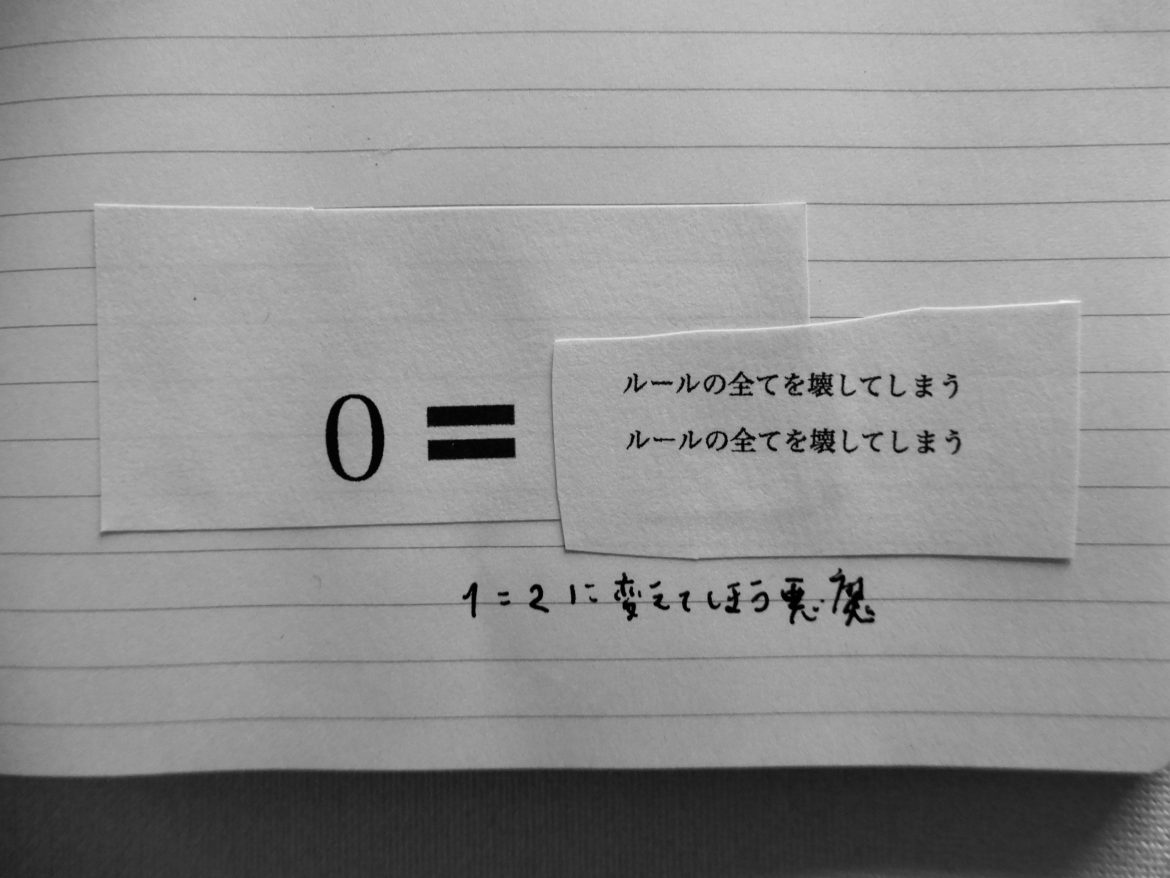 0 =
ルールの全てを壊してしまう
ルールの全てを壊してしまう
1=2に変えてしまう悪魔